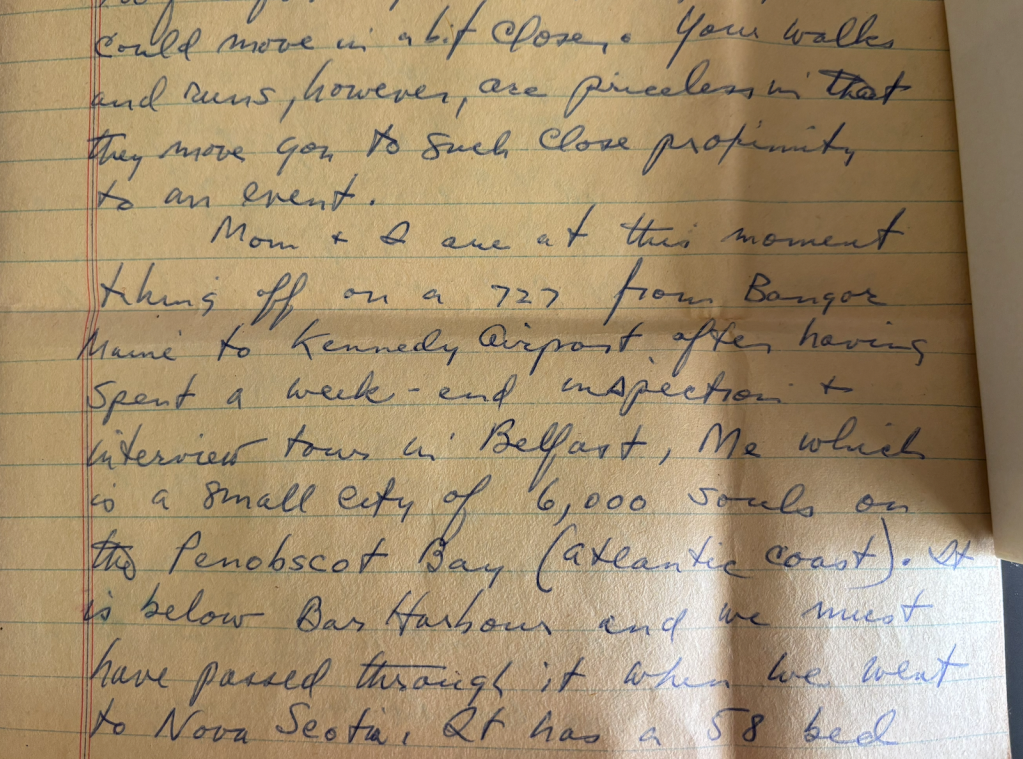 could move in a bit closer. Your walks
and runs, however, are priceless in that
they move you to such close propimity
to an event.
Mom + I are at this moment
taking off on a 727 from Bangor
Maine to Kennedy Airport after having
spent a week-end inspection +
interview tour in Belfast, Me which
is a small city of 6,000 souls on
the Penobscot Bay (atlantic coast). It
is below Bar Harbour and we must
have passed through it when we went
to Nova Scotia. It has a 58 bed